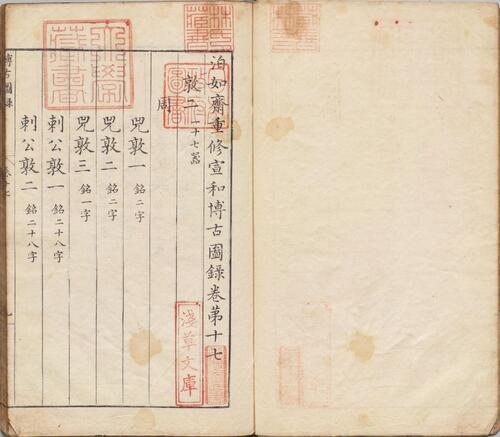 林氏藏書
泊如齋重修宣和博古圖錄卷第十七
敦二 一十七器
周
兕敦一 銘二字
兕敦二 銘二字
兕敦三 銘一字
剌公敦一 銘二十八字
剌公敦二 銘二十八字
博古圖錄
淺草文庫